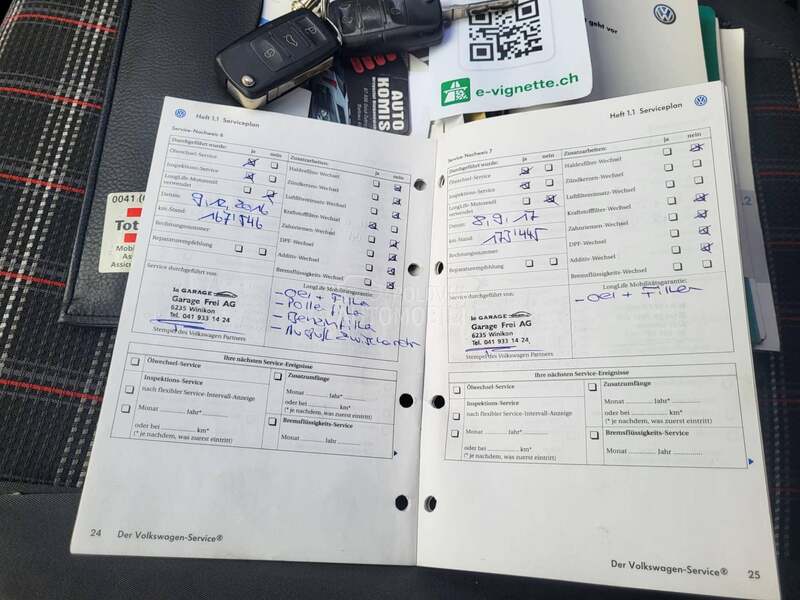 e-vignette.ch
geht vor
AUTO
KOMIS
0041
Tot
Mobi
Assi
Assic
Heft 1.1 Serviceplan
Service-Nachweis 6
Durchgeführt wurde: ja nein
Ölwechsel-Service
Inspektions-Service
LongLife-Motorenöl verwendet
Datum: 9.12.2016
km-Stand: 167'946
Rechnungsnummer
Reparaturempfehlung
Zusatzarbeiten: ja nein
Haldexfilter-Wechsel
Zündkerzen-Wechsel
Luftfiltereinsatz-Wechsel
Kraftstofffilter-Wechsel
Zahnriemen-Wechsel
DPF-Wechsel
Additiv-Wechsel
Bremsflüssigkeits-Wechsel
Service durchgeführt von:
le GARAGE
Garage Frei AG
6235 Winikon
Tel. 041 933 14 24
Stempel des Volkswagen Partners
LongLife Mobilitätsgarantie:
- Oel + Filter
Ihre nächsten Service-Ereignisse
Ölwechsel-Service
Inspektions-Service
nach flexibler Service-Intervall-Anzeige
Monat ........... Jahr*...........
oder bei ........... km*
(* je nachdem, was zuerst eintritt)
Zusatzumfänge
Monat ........... Jahr*...........
oder bei ........... km*
(* je nachdem, was zuerst eintritt)
Bremsflüssigkeits-Service
Monat ........... Jahr ...........
24 Der Volkswagen-Service®
Heft 1.1 Serviceplan
Service-Nachweis 7
Durchgeführt wurde: ja nein
Ölwechsel-Service
Inspektions-Service
LongLife-Motorenöl verwendet
Datum: 8.9.17
km-Stand: 175'445
Rechnungsnummer
Reparaturempfehlung
Zusatzarbeiten: ja nein
Haldexfilter-Wechsel
Zündkerzen-Wechsel
Luftfiltereinsatz-Wechsel
Kraftstofffilter-Wechsel
Zahnriemen-Wechsel
DPF-Wechsel
Additiv-Wechsel
Bremsflüssigkeits-Wechsel
Service durchgeführt von:
le GARAGE
Garage Frei AG
6235 Winikon
Tel. 041 933 14 24
Stempel des Volkswagen Partners
LongLife Mobilitätsgarantie:
- Oel + Filter
Ihre nächsten Service-Ereignisse
Ölwechsel-Service
Inspektions-Service
nach flexibler Service-Intervall-Anzeige
Monat ........... Jahr*...........
oder bei ........... km*
(* je nachdem, was zuerst eintritt)
Zusatzumfänge
Monat ........... Jahr*...........
oder bei ........... km*
(* je nachdem, was zuerst eintritt)
Bremsflüssigkeits-Service
Monat ........... Jahr ...........
Der Volkswagen-Service® 25